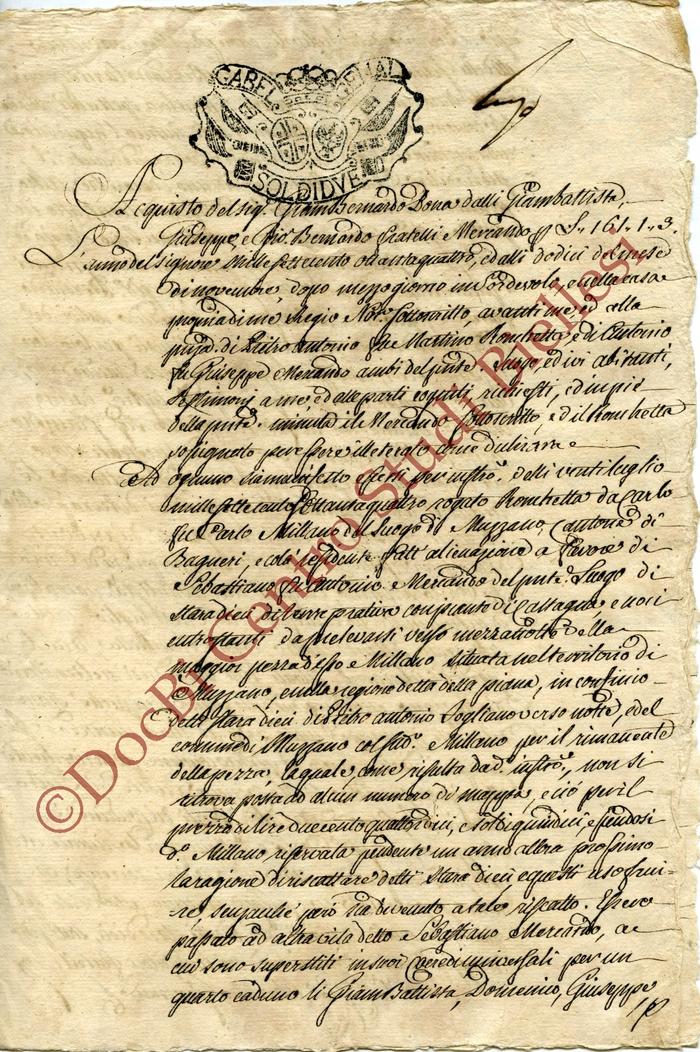 GABEL GENAL
SOLDI DVE
Acquisto del sig. GiamBernardo Dona dalli GiamBattista,
Giuseppe, e Gio. Bernardo fratelli Mercando p L. 161.1.3.
L'anno del signore mille settecento ottantaquattro, ed alli dodeci del mese
di novembre, dopo mezzo giorno in Sordevolo, e nella casa
propria di me Regio Not. sottoscritto, avanti me, ed alla
pnza. di Pietro Antonio fu Martino Ronchetta, e di Antonio
fu Giuseppe Mercando ambi del pnte Luogo, ed ivi abitanti,
Testimonj a me, ed alle parti cogniti, richiesti, ed in pie
della pnte. minuta il Mercando sottoscritto, ed il Ronchetta
segnato per essere illetterato come dichiara
Ad ognuno sia manifesto essersi per instro. delli venti luglio
mille sette cento settanta quattro rogato Ronchetta da Carlo
fu Carlo Millano del Luogo di Muzzano, Cantone di
Bagneri, e colà residente fatt'alienazione a favore di
Sebastiano fu Antonio Mercando del pnte. Luogo di
stara dieci di terra prativa con pianta di Castagna, e noci
entrostanti da prelevarsi verso mezzanotte della
maggior pezza d'esso Millano situata nel territorio di
Muzzano, e nella regione detta della piana, in confinio
detti stara dieci di Pietro antonio Fogliano verso notte, e del
commune di Muzzano col sud. Millano per il rimanente
della pezza, la quale come risulta da d. instro., non si
ritrova posta ad alcun numero di mappa, e ciò per il
prezzo di lire duecento quattordici, e soldi quindici, essendosi
d. Millano riservata pendente un anno allora prossimo
la ragione di riscattare detti stara dieci e questi usufrui-
re, senzachè però sia divenuto a tale riscatto. Esser
passato ad altra vita detto Sebastiano Mercando, a
cui sono superstiti in suoi eredi universali per un
quarto caduno li GiamBattista, Domenico, Giuseppe
©DocBi Centro Studi Biellesi